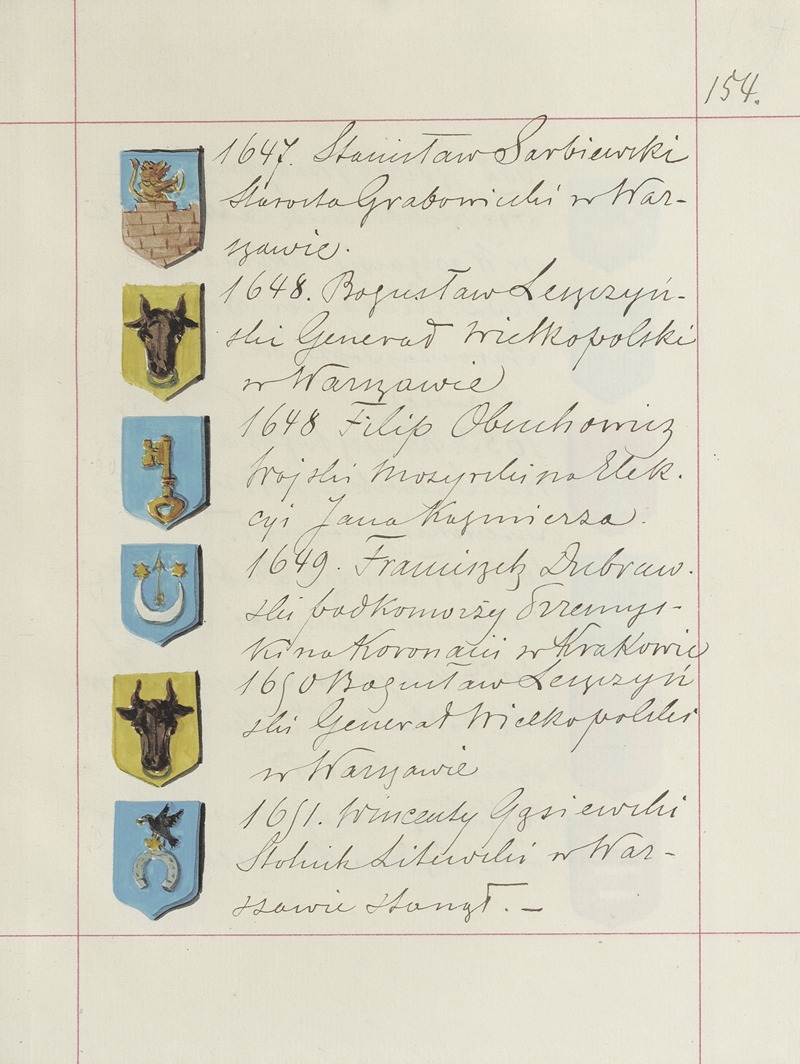 154.
1647. Stanisław Sarbiewski
Starosta Grabowiecki w War-
szawie.
1648. Bogusław Leszczyń-
ski Generał Wielkopolski
w Warszawie
1648 Filip Obuchowicz
Wojski Mozyrski na Elek.
cyi Jana Kazmierza.
1649. Franciszek Dubraw.
ski podkomorzy Przemys-
ki na Koronacii w Krakowie
1650 Bogusław Leszczyń
ski Generał Wielkopolski
w Warszawie
1651. Wincenty Gąsiewski
Stolnik Litewski w War-
szawie stanął. —